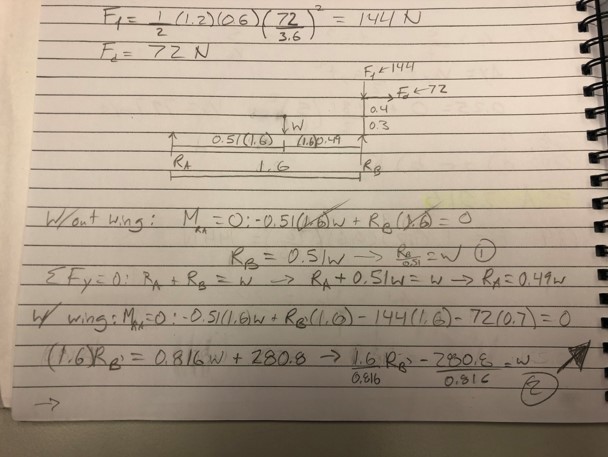 F₁ = 1/2 (1.2)(0.6)(72/3.6)² = 144 N
F_d = 72 N
F₁ ← 144
F_d ← 72
0.4
W
0.3
0.51(1.6) (1.6)0.49
R_A 1.6 R_B
W/out wing: M_RA = 0: -0.51(1.6)w + R_B(1.6) = 0
R_B = 0.51w → R_B/0.51 = w ①
ΣFy = 0: R_A + R_B = w → R_A + 0.51w = w → R_A = 0.49w
W/ wing: M_RA = 0: -0.51(1.6)w + R_B'(1.6) - 144(1.6) - 72(0.7) = 0
(1.6)R_B' = 0.816w + 280.8 → 1.6/0.816 R_B' - 280.8/0.816 = w
②
→